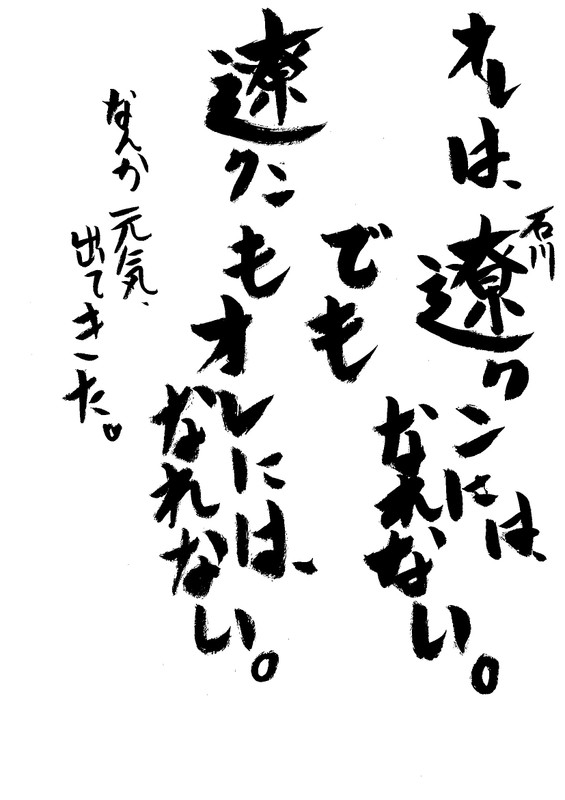 オレは、
石川
遼クンには、
なれない。
でも
遼クンも
オレには、
なれない。
なんか
元気、
出てきた。